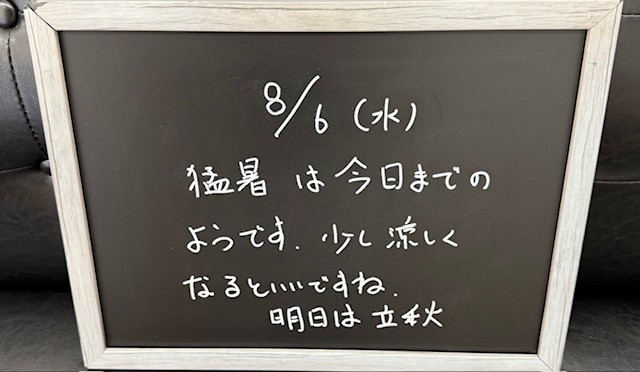 8/6 (水)
猛暑 は 今日までの
ようです. 少し 涼しく
なるといいですね.
明日は 立秋